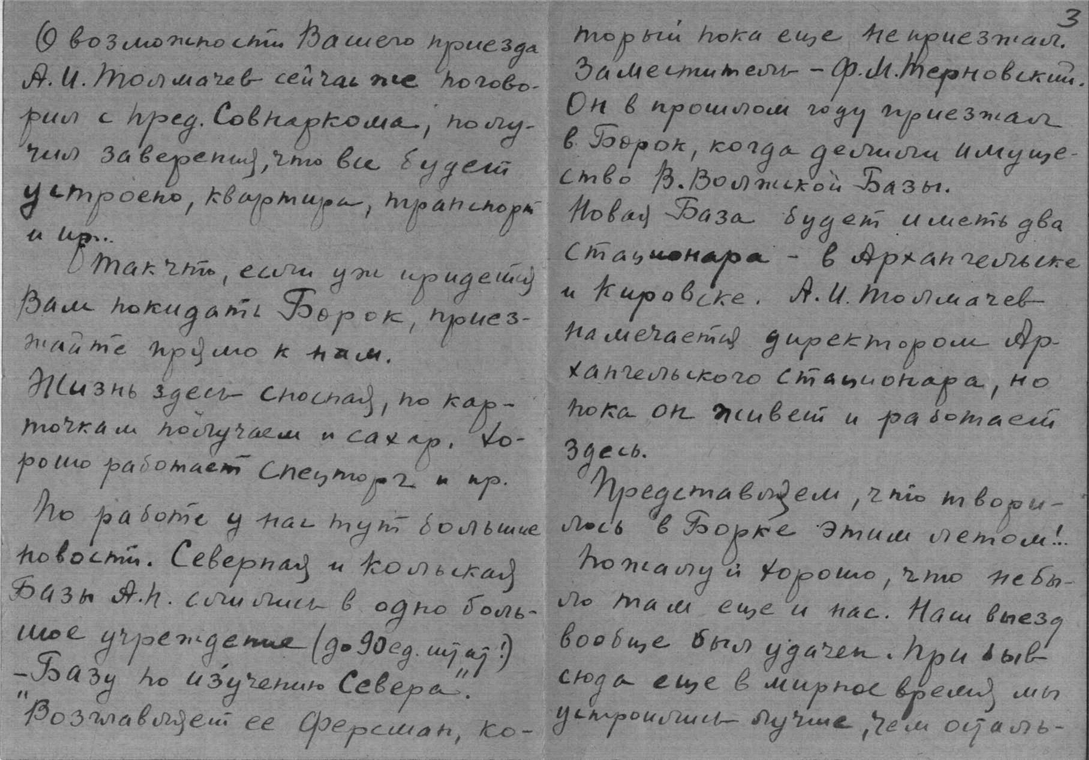 О возможности Вашего приезда
А.И. Толмачев сейчас же погово-
рил с пред. Совнаркома, полу-
чил заверения, что все будет
устроено, квартира, транспорт
и пр..
Так что, если уж придется
Вам покидать Борок, приез-
жайте прямо к нам.
Жизнь здесь сносная, по кар-
точкам получаем и сахар. Хо-
рошо работает спецторг и пр.
По работе у нас тут большие
новости. Северная и Кольская
Базы А.Н. слились в одно боль-
шое учреждение (до 90 ед. штат!)
– "Базу по изучению Севера".
Возглавляет ее Ферсман, ко-
3
торый пока еще не приезжал.
Заместитель – Ф.М. Терновский.
Он в прошлом году приезжал
в Борок, когда делили имуще-
ство В. Волжской Базы.
Новая База будет иметь два
стационара – в Архангельске
и Кировске. А.И. Толмачев
намечается директором Ар-
хангельского стационара, но
пока он живет и работает
здесь.
Представляем, что твори-
лось в Борке этим летом!..
Пожалуй хорошо, что не бы-
ло там еще и нас. Наш выезд
вообще был удачен. Прибыв
сюда еще в мирное время, мы
устроились лучше, чем осталь-